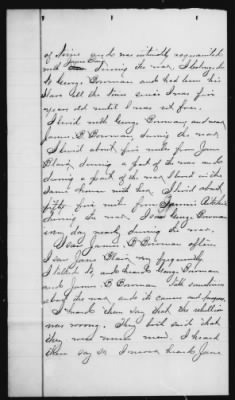 of Jane and was intimately acquainted
with James Bowman during the war. I belonged
to George Bowman and had been his
slave all the time since I was five
years old until I was set free.
I lived with George Bowman and near
James B Bowman during the war
I lived about five miles from Jane
Blair during a part of the war and
during a part of the war I lived in the
same house with her. I lived about
fifty five miles from
during the war. I saw George Bowman
every day nearly during the war.
I saw James B Bowman often.
I saw Jane Blair very frequently
I talked to, and heard George Bowman
and James B Bowman talk sometimes
about the war and its causes and
I heard them say that the rebellion
was wrong. They both said that
they were union men. I heard
them say so. I never heard Jane